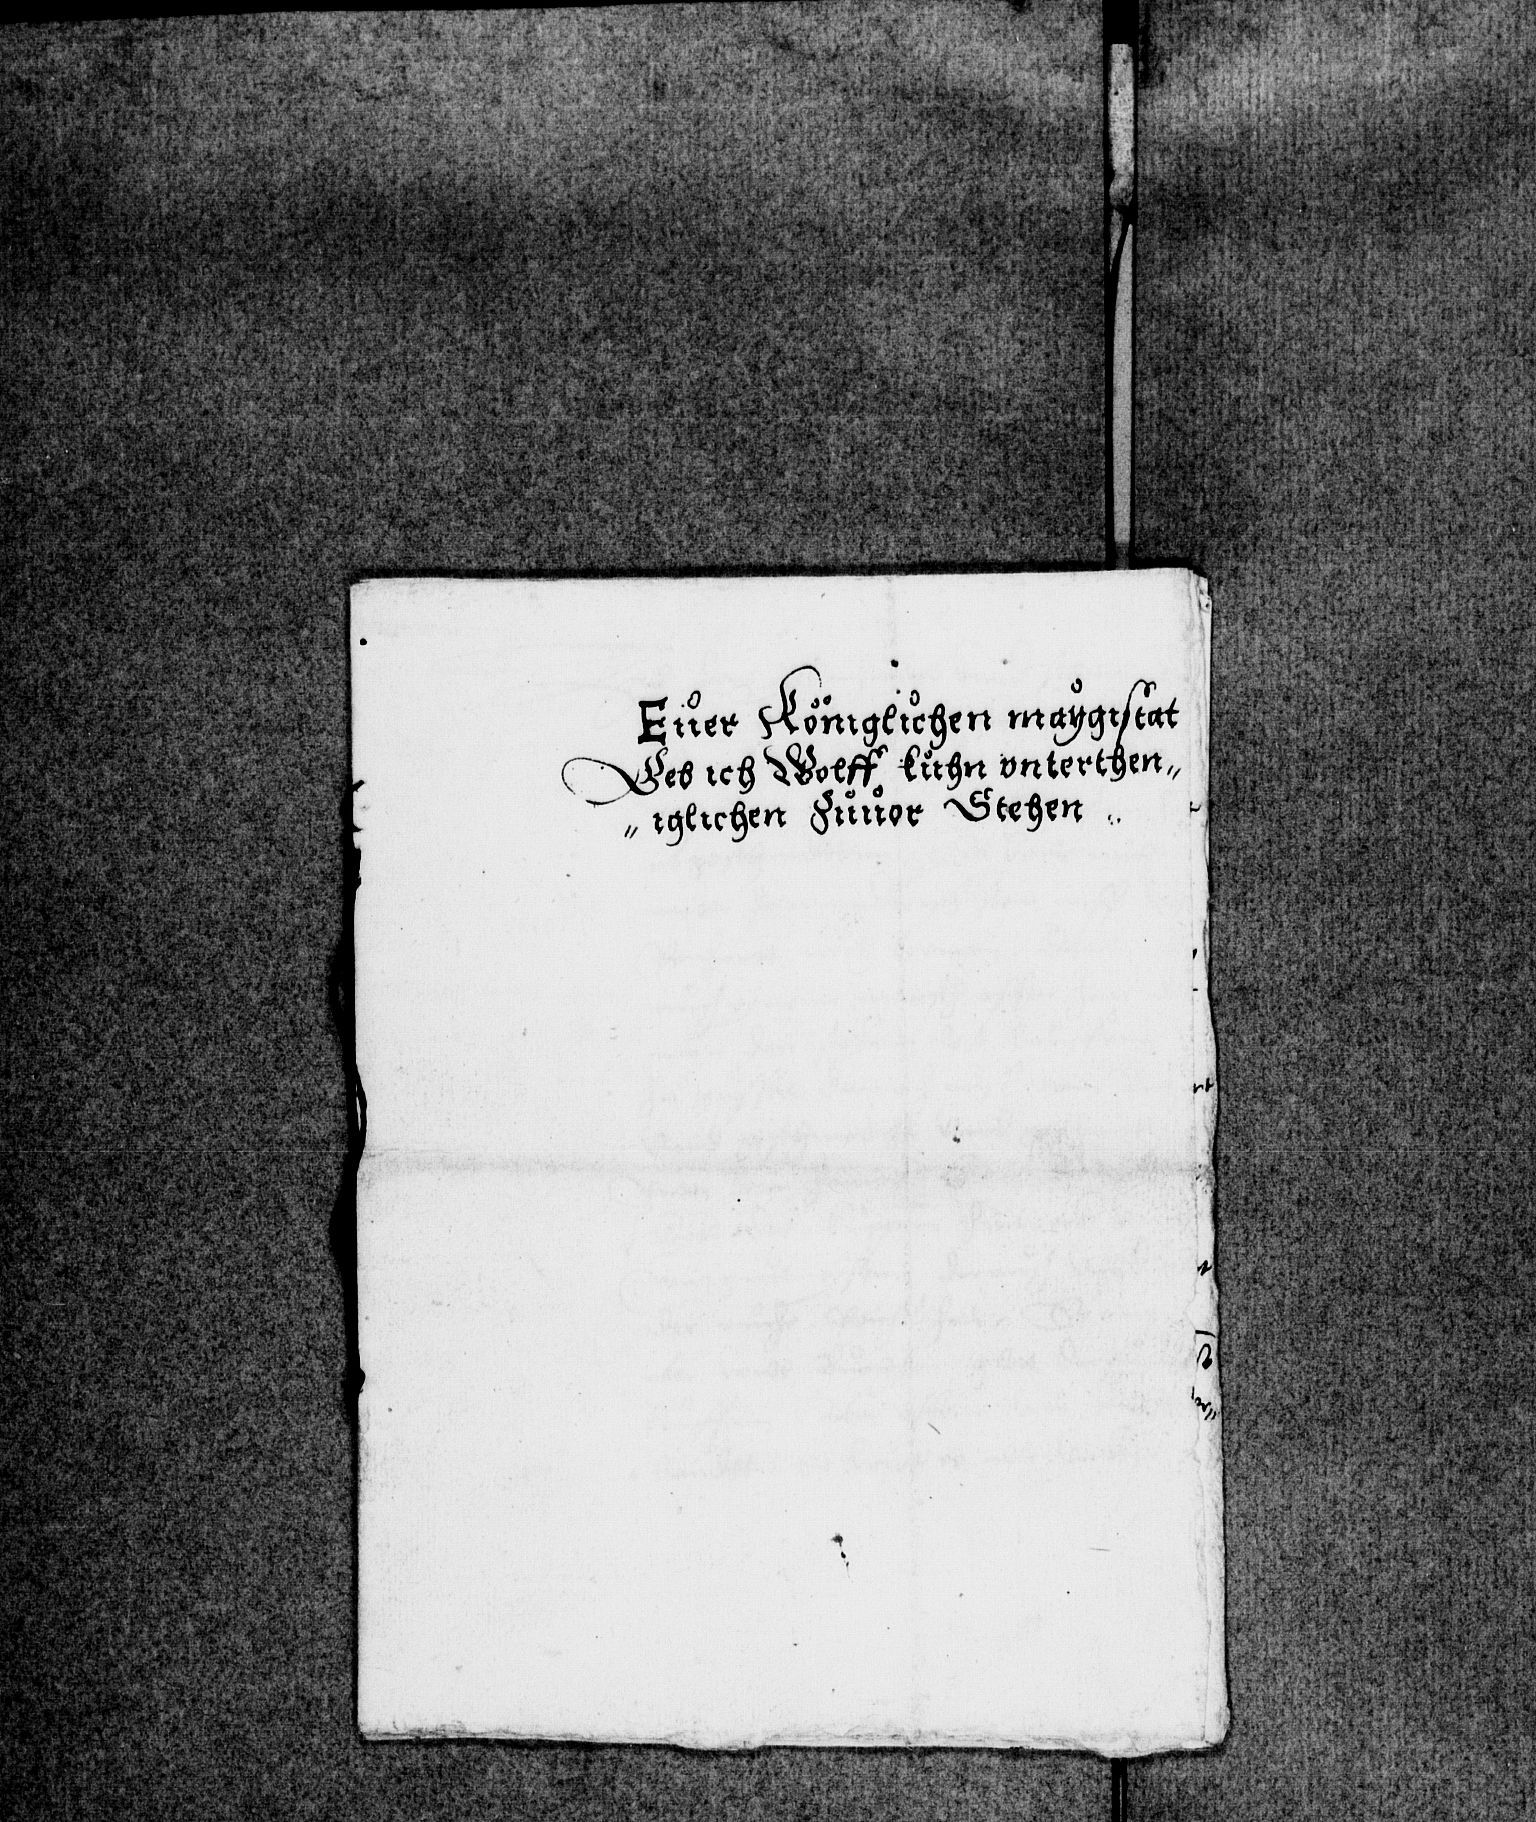 Eůer Königlichen maÿgistat
Geb ich Wolff kuhn vnterthen„
„iglichen Zuuor Stehen ..